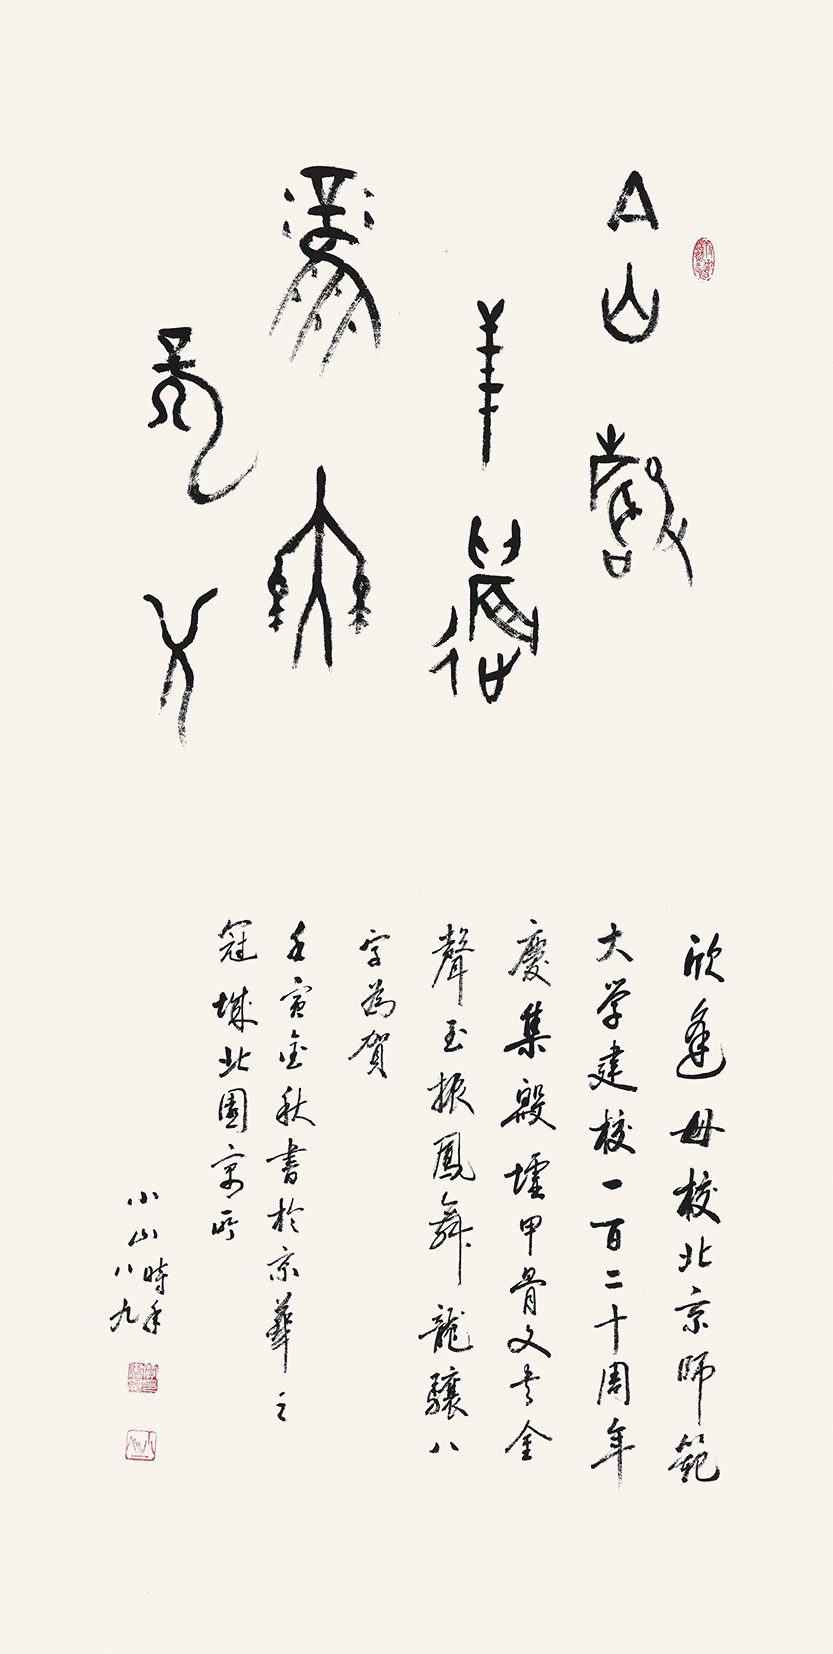 金聲
玉振
鳳舞
龍驤
欣逢母校北京師範
大学建校一百二十周年
慶集殷墟甲骨文书金
聲玉振鳳舞龍驤八
字為賀
壬寅金秋書於京華之
冠城北園寓所
小山時年八九